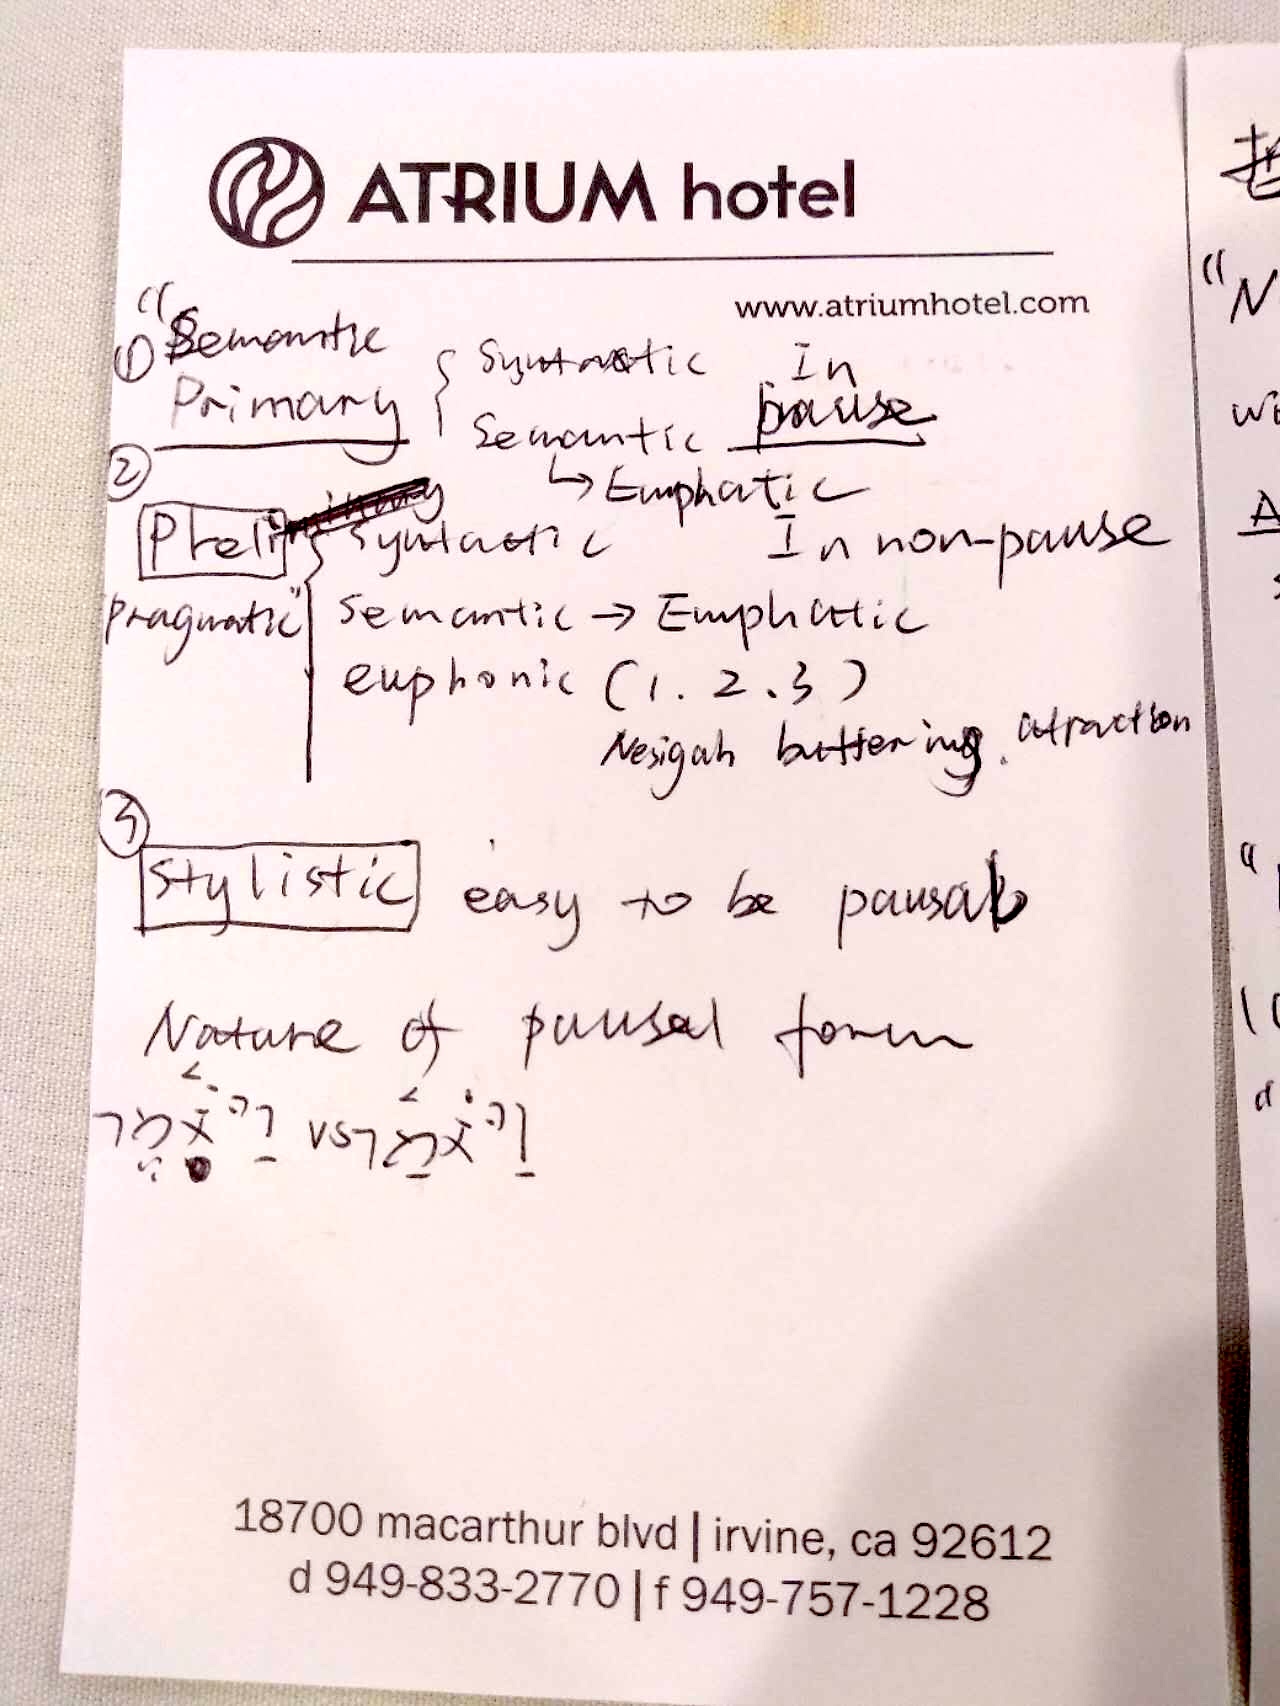 ATRIUM hotel
www.atriumhotel.com
"Semantic
① Primary { Syntactic In
Semantic pause
↳ Emphatic
②
Preli Syntactic In non-pause
Pragmatic" semantic → Emphatic
euphonic (1. 2. 3)
Nesigah buttering. attraction
③
Stylistic easy to be pausal
Nature of pausal form
vs
18700 macarthur blvd | irvine, ca 92612
d 949-833-2770 | f 949-757-1228
"N
A